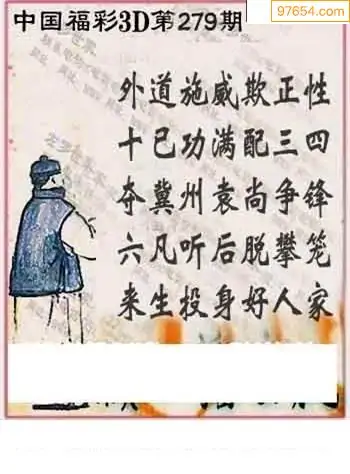 97654.com
中国福彩3D第279期
外道施威欺正性
十已功满配三四
夺冀州袁尚争锋
六凡听后脱攀笼
来生投身好人家